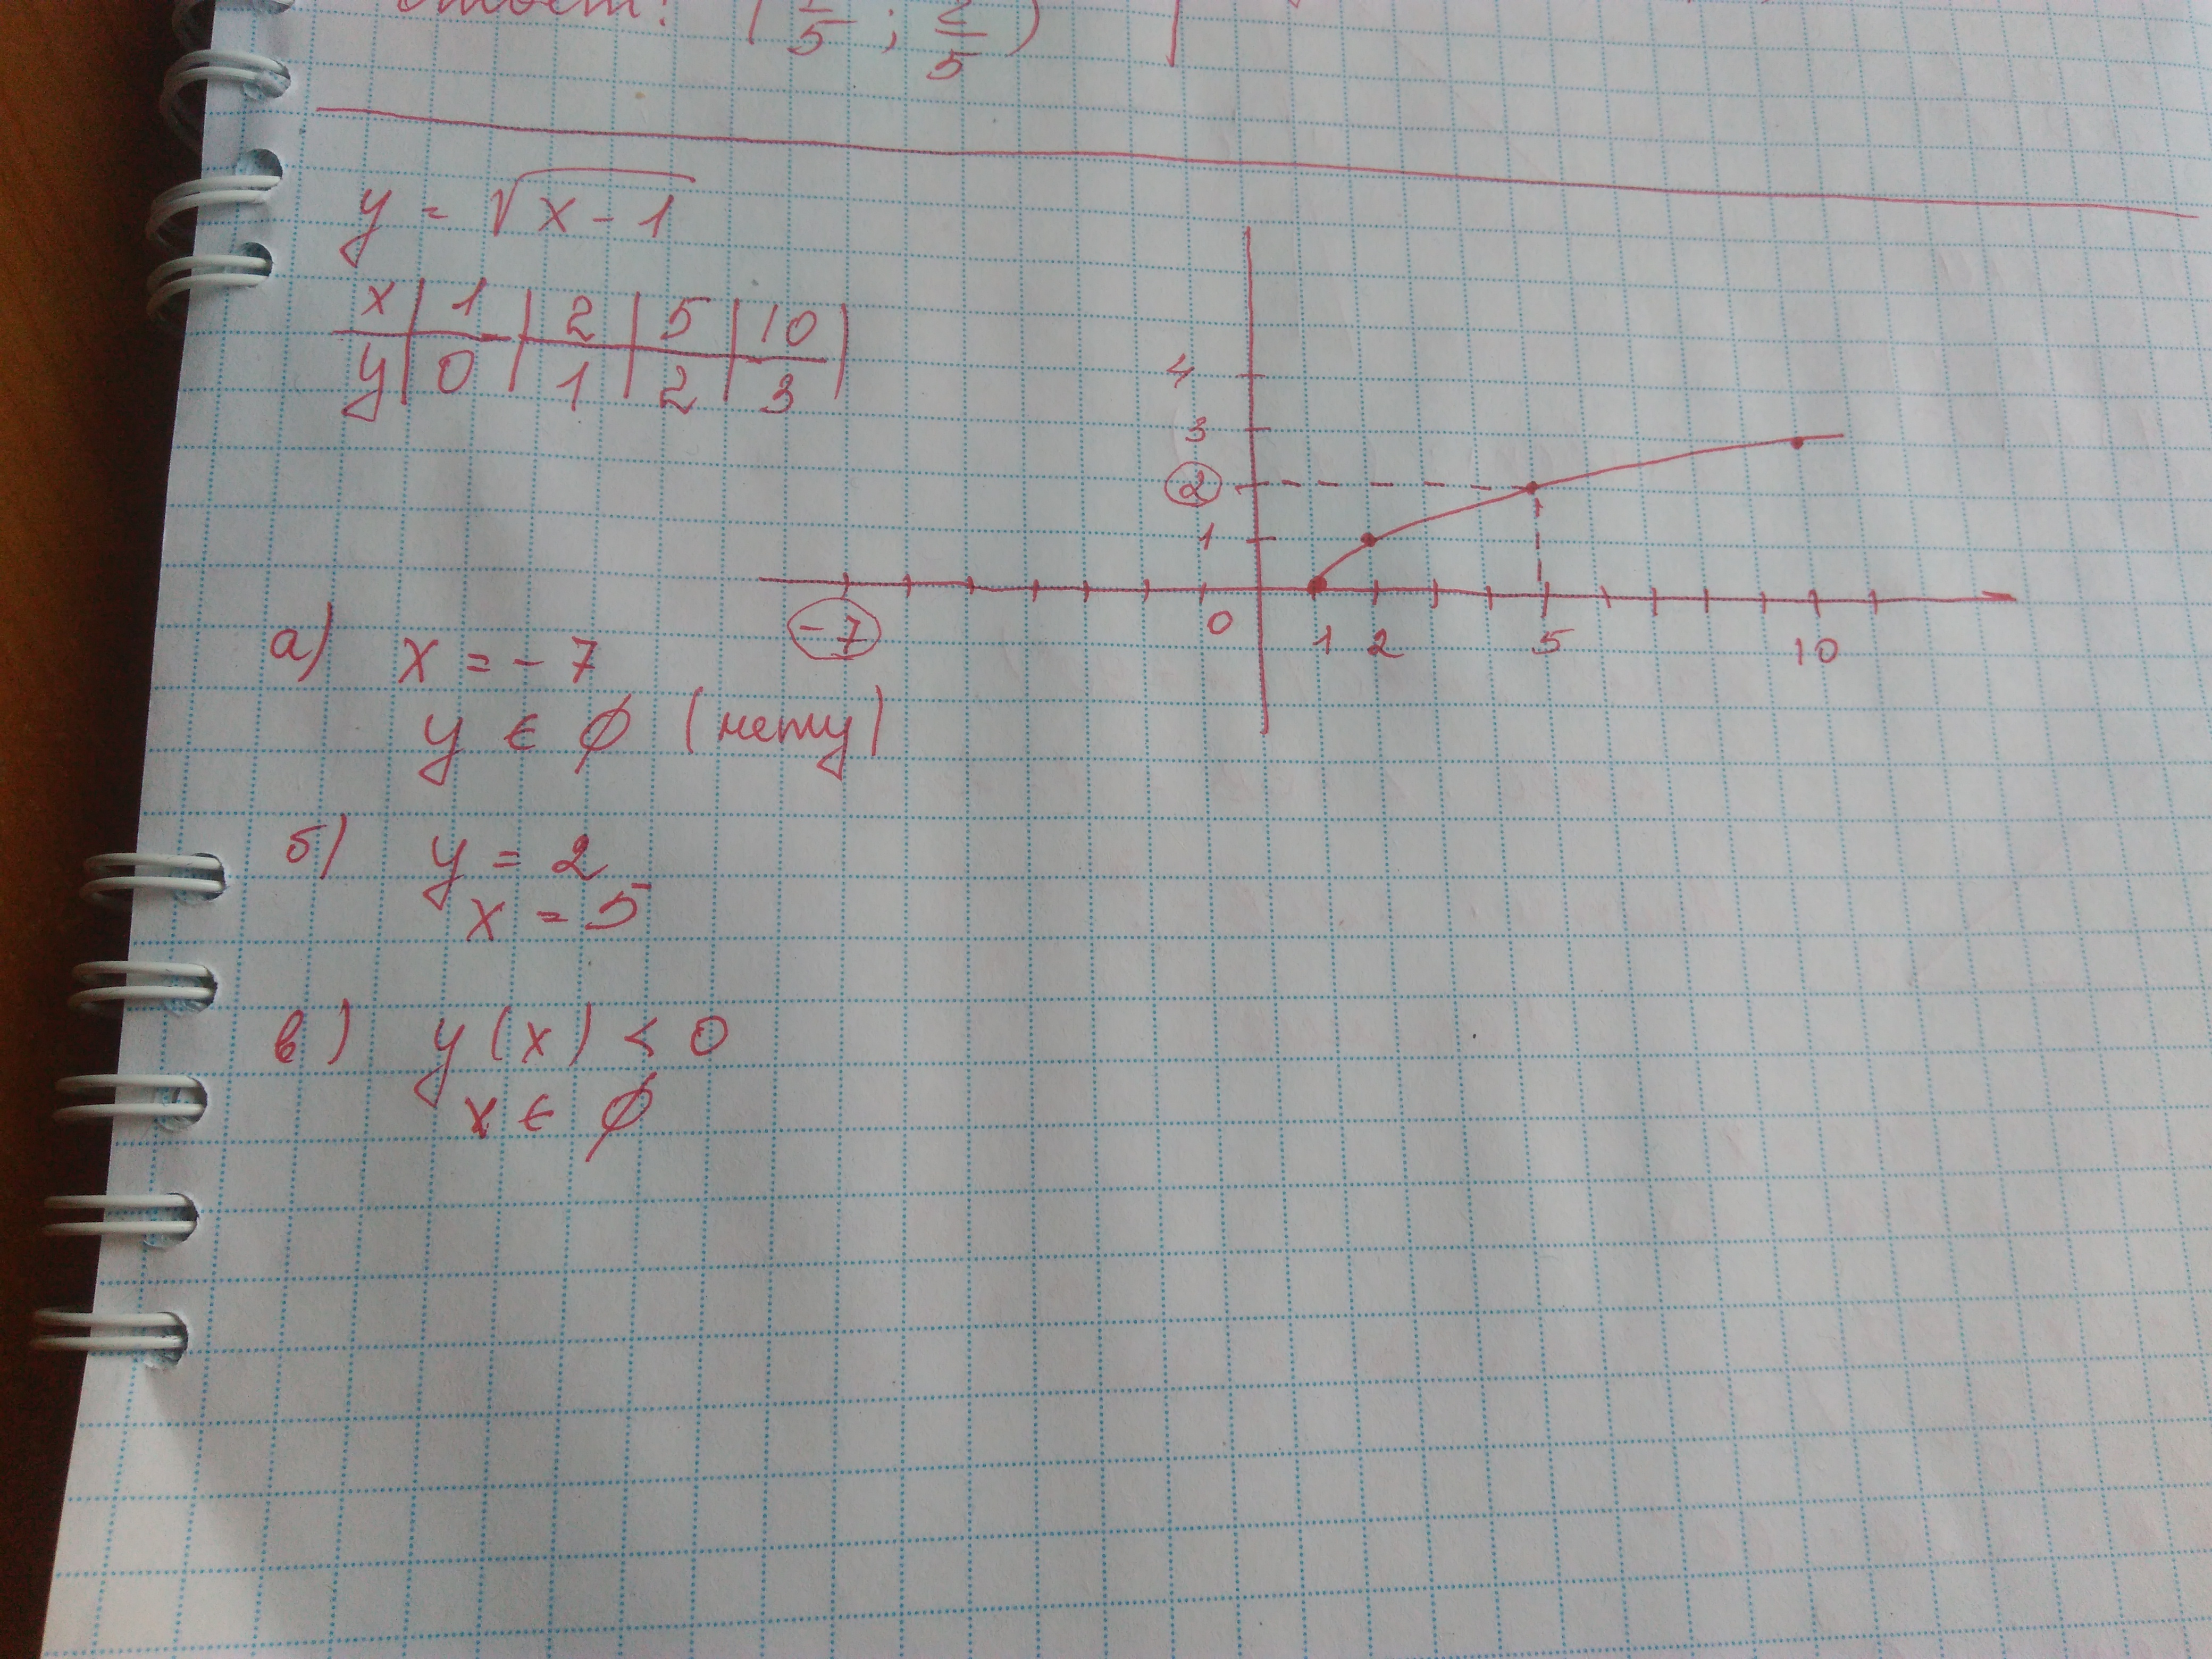 ( 1/5 ; 2/5 )
y = √x - 1
x | 1 | 2 | 5 | 10 |
y | 0 | 1 | 2 | 3 |
4
3
2
1
-7 0 1 2 5 10
а) x = - 7
y ∈ ∅ (нету)
б) y = 2
x = 5
в) y (x) < 0
x ∈ ∅